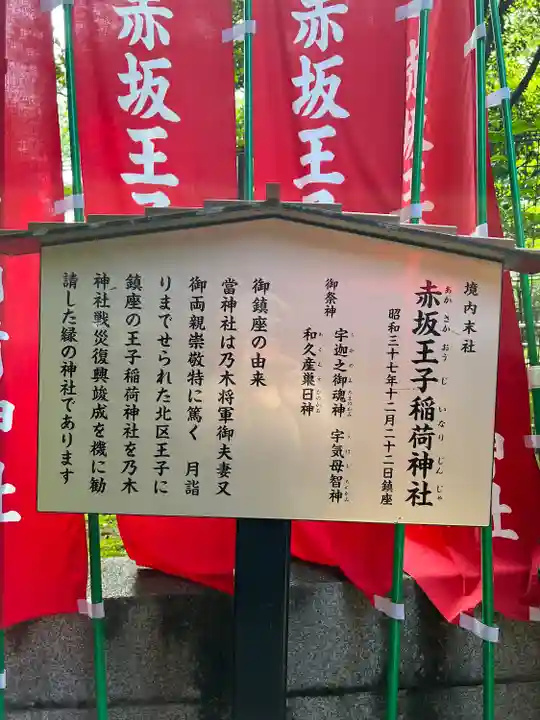 境内末社
赤坂王子稲荷神社
あかさかおうじいなりじんじゃ
昭和三十七年十二月二十二日鎮座
御祭神
宇迦之御魂神 宇気母智神
和久産巣日神
御鎮座の由来
當神社は乃木将軍御夫妻又
御両親崇敬特に篤く 月詣
りまでせられた北区王子に
鎮座の王子稲荷神社を乃木
神社戦災復興竣成を機に勧
請した縁の神社であります
赤坂王子
赤坂王子